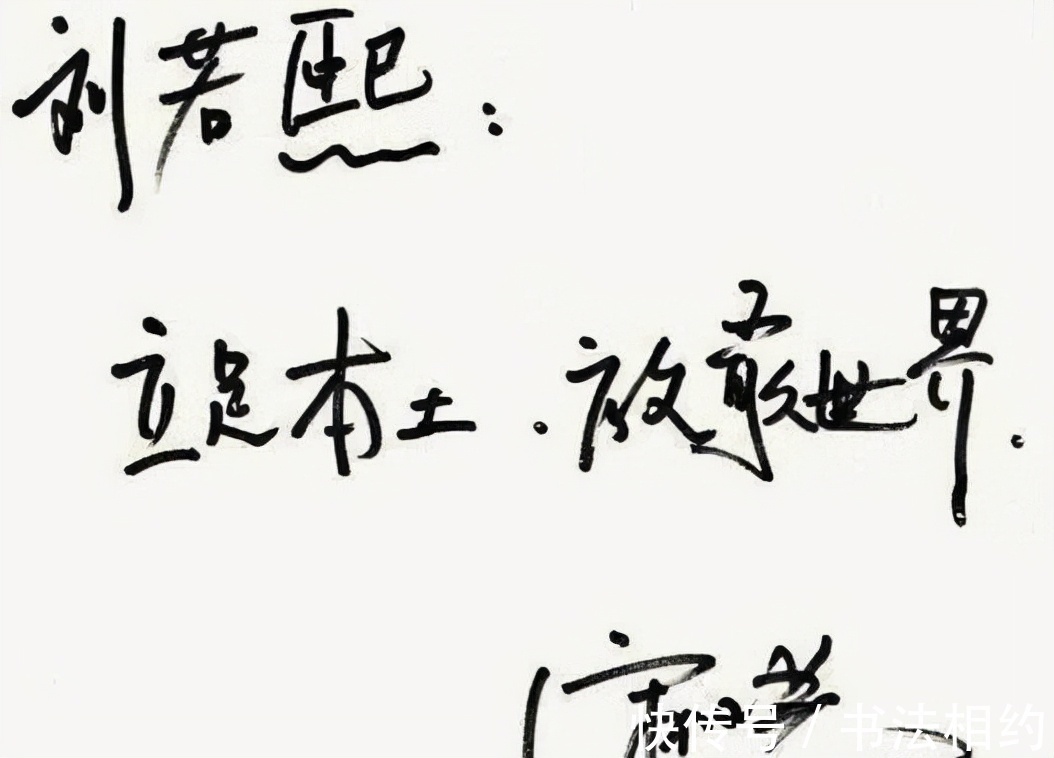 刘若熙：
立足本土．放敢世界．
快传号 / 书法相约